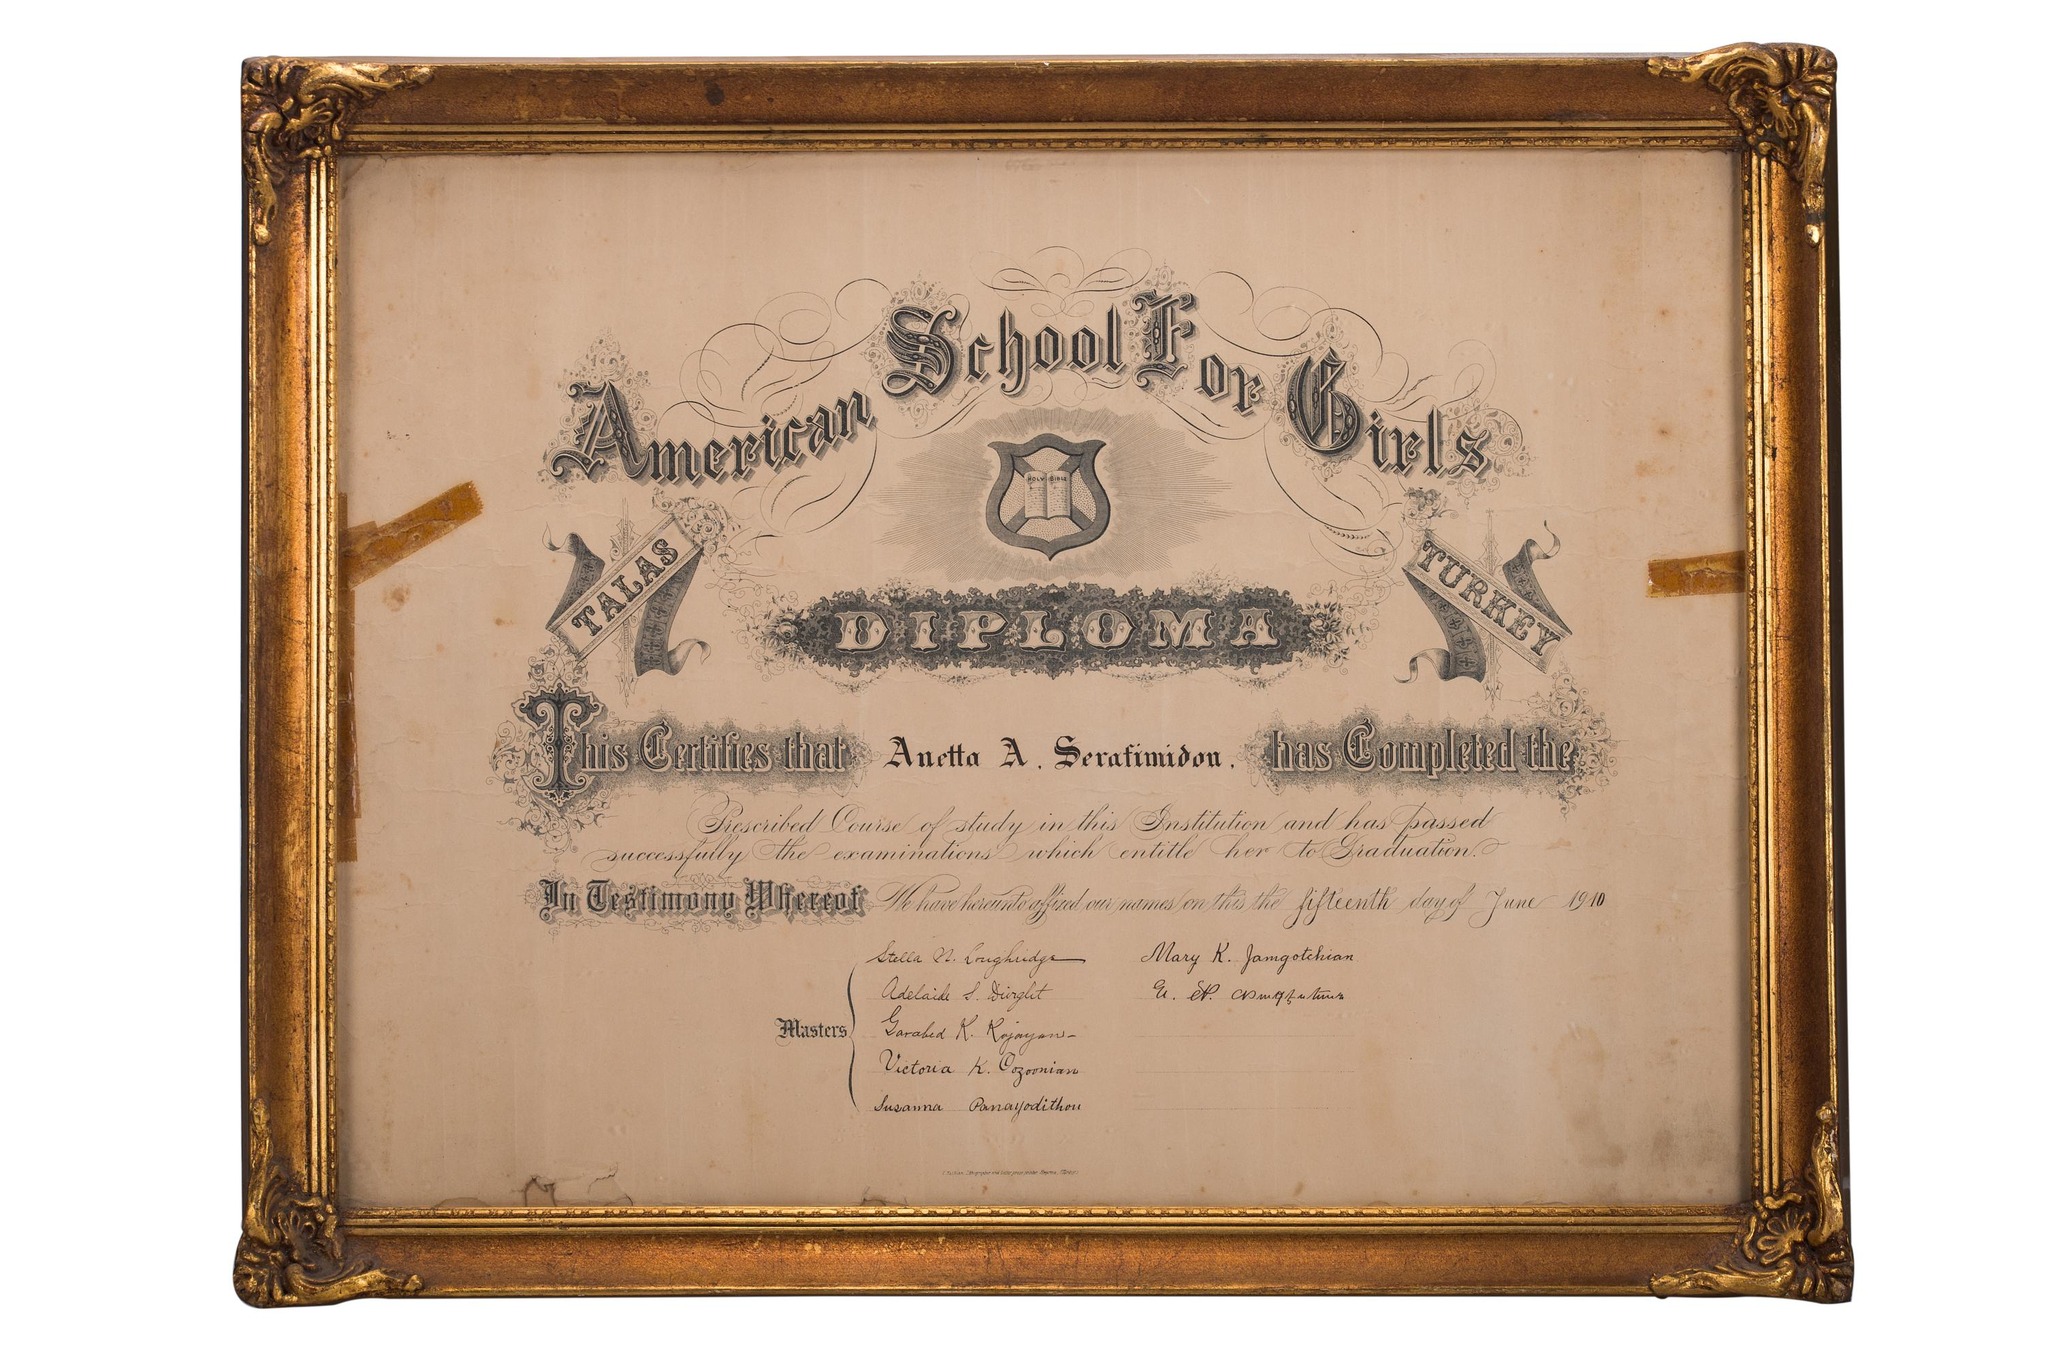 American School For Girls
HOLY BIBLE
TALAS
TURKEY
DIPLOMA
This Certifies that Anetta A. Serafimidou. has Completed the
Prescribed Course of study in this Institution and has passed
successfully the examinations which entitle her to Graduation.
In Testimony Whereof We have hereunto affixed our names on this the fifteenth day of June 1910
Stella N. Loughridge Mary K. Jamgotchian
Adelaide S. Dwight
Masters
Garabed K. Kojayan
Victoria K. Cozoonian
Susanna Panayodithou